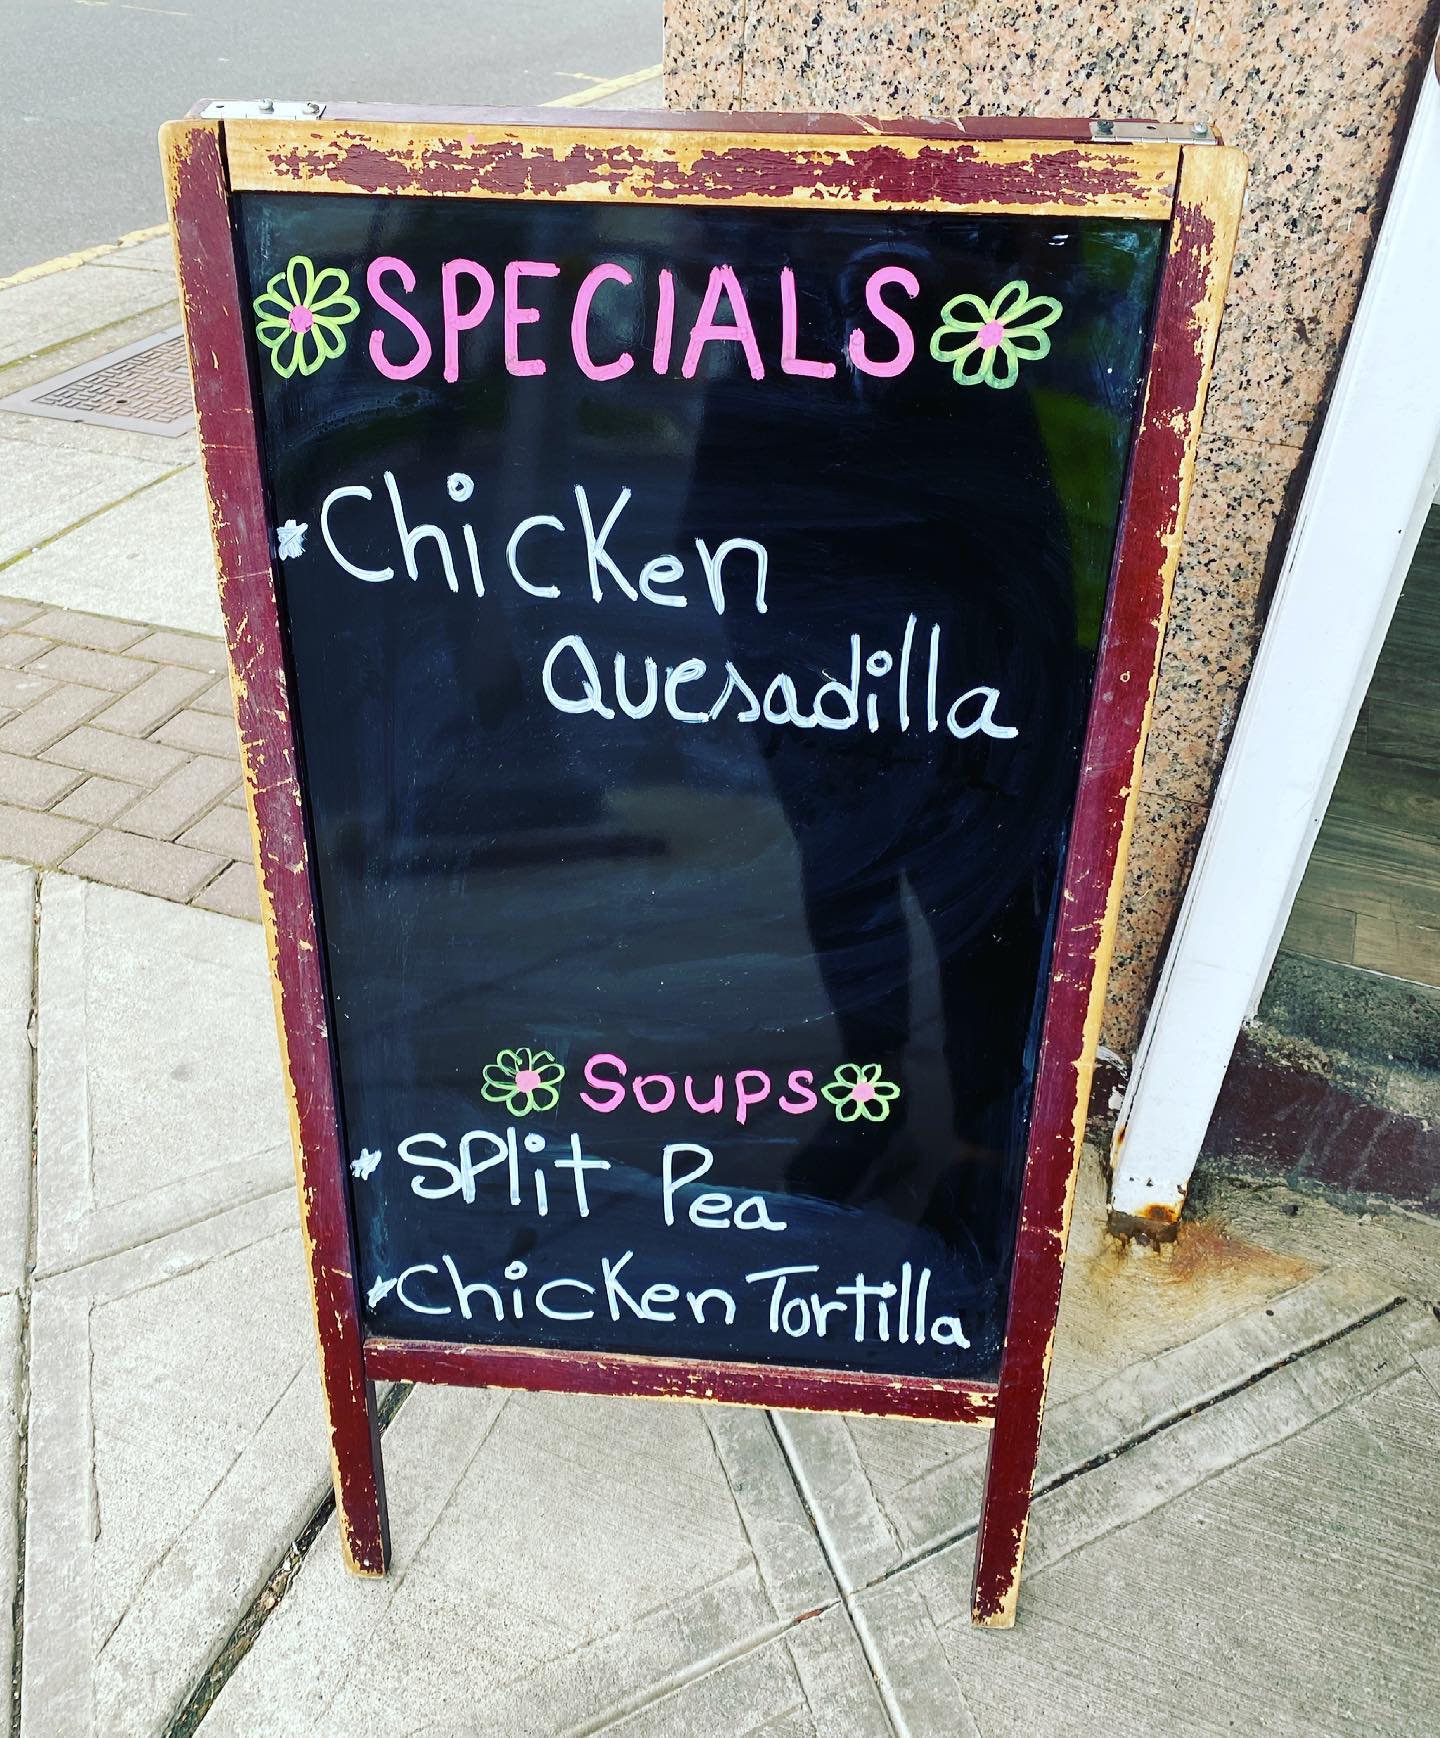 SPECIALS
* Chicken
Quesadilla
Soups
* Split Pea
* Chicken Tortilla